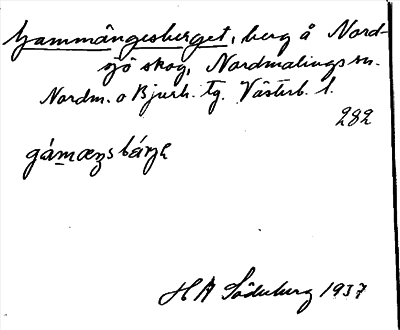 Gammängesberget, berg å Nord-
sjö skog, Nordmalings sn.
Nordm. o Bjurh. tg. Västerb. l.
282
H A Söderberg 1937